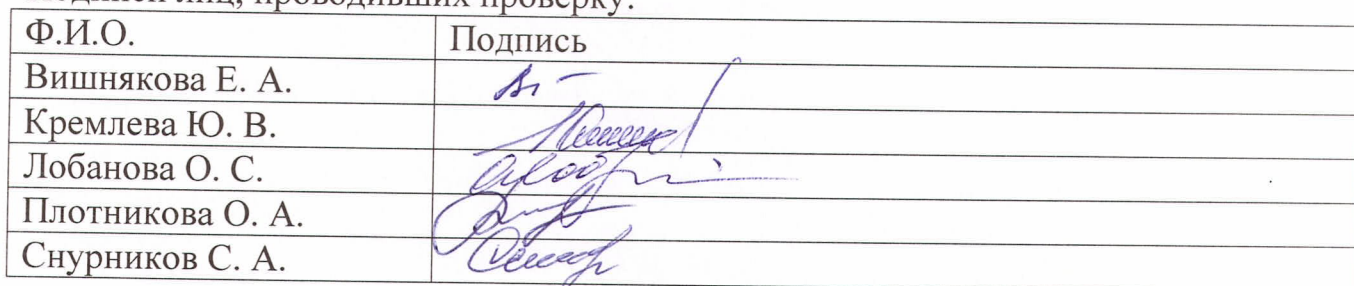 Подписи лиц, проводивших проверку:
Ф.И.О. Подпись
Вишнякова Е. А.
Кремлева Ю. В.
Лобанова О. С.
Плотникова О. А.
Снурников С. А.